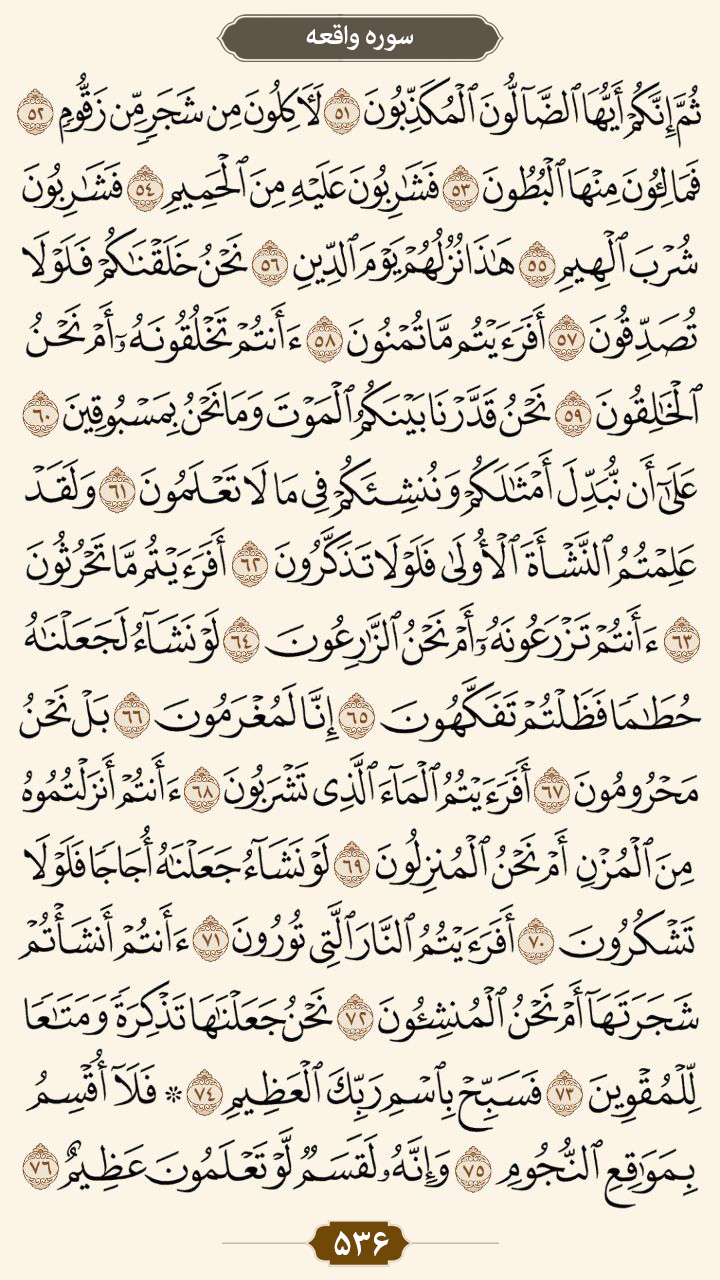 سوره واقعه
ثُمَّ إِنَّكُمْ أَيُّهَا ٱلضَّآلُّونَ ٱلْمُكَذِّبُونَ ٥١ لَـَٔاكِلُونَ مِن شَجَرٍ مِّن زَقُّومٍ ٥٢
فَمَالِـُٔونَ مِنْهَا ٱلْبُطُونَ ٥٣ فَشَـٰرِبُونَ عَلَيْهِ مِنَ ٱلْحَمِيمِ ٥٤ فَشَـٰرِبُونَ
شُرْبَ ٱلْهِيمِ ٥٥ هَـٰذَا نُزُلُهُمْ يَوْمَ ٱلدِّينِ ٥٦ نَحْنُ خَلَقْنَـٰكُمْ فَلَوْلَا
تُصَدِّقُونَ ٥٧ أَفَرَءَيْتُم مَّا تُمْنُونَ ٥٨ ءَأَنتُمْ تَخْلُقُونَهُۥٓ أَمْ نَحْنُ
ٱلْخَـٰلِقُونَ ٥٩ نَحْنُ قَدَّرْنَا بَيْنَكُمُ ٱلْمَوْتَ وَمَا نَحْنُ بِمَسْبُوقِينَ ٦٠
عَلَىٰٓ أَن نُّبَدِّلَ أَمْثَـٰلَكُمْ وَنُنشِئَكُمْ فِى مَا لَا تَعْلَمُونَ ٦١ وَلَقَدْ
عَلِمْتُمُ ٱلنَّشْأَةَ ٱلْأُولَىٰ فَلَوْلَا تَذَكَّرُونَ ٦٢ أَفَرَءَيْتُم مَّا تَحْرُثُونَ
٦٣ ءَأَنتُمْ تَزْرَعُونَهُۥٓ أَمْ نَحْنُ ٱلزَّٰرِعُونَ ٦٤ لَوْ نَشَآءُ لَجَعَلْنَـٰهُ
حُطَـٰمًا فَظَلْتُمْ تَفَكَّهُونَ ٦٥ إِنَّا لَمُغْرَمُونَ ٦٦ بَلْ نَحْنُ
مَحْرُومُونَ ٦٧ أَفَرَءَيْتُمُ ٱلْمَآءَ ٱلَّذِى تَشْرَبُونَ ٦٨ ءَأَنتُمْ أَنزَلْتُمُوهُ
مِنَ ٱلْمُزْنِ أَمْ نَحْنُ ٱلْمُنزِلُونَ ٦٩ لَوْ نَشَآءُ جَعَلْنَـٰهُ أُجَاجًا فَلَوْلَا
تَشْكُرُونَ ٧٠ أَفَرَءَيْتُمُ ٱلنَّارَ ٱلَّتِى تُورُونَ ٧١ ءَأَنتُمْ أَنشَأْتُمْ
شَجَرَتَهَآ أَمْ نَحْنُ ٱلْمُنشِـُٔونَ ٧٢ نَحْنُ جَعَلْنَـٰهَا تَذْكِرَةً وَمَتَـٰعًا
لِّلْمُقْوِينَ ٧٣ فَسَبِّحْ بِٱسْمِ رَبِّكَ ٱلْعَظِيمِ ٧٤ * فَلَآ أُقْسِمُ
بِمَوَٰقِعِ ٱلنُّجُومِ ٧٥ وَإِنَّهُۥ لَقَسَمٌ لَّوْ تَعْلَمُونَ عَظِيمٌ ٧٦
۵۳۶